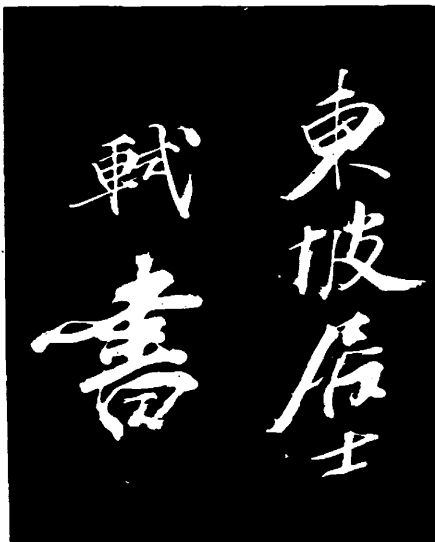 東坡居士
軾書